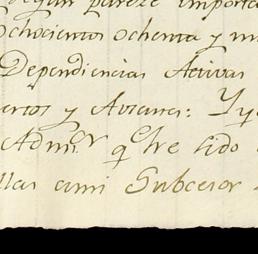 segun pareze importa
ochocientos ochenta y un
Dependiencias Activas
y Atrasos: Y q
Adm.or q.e he sido
llas ami Subcesor